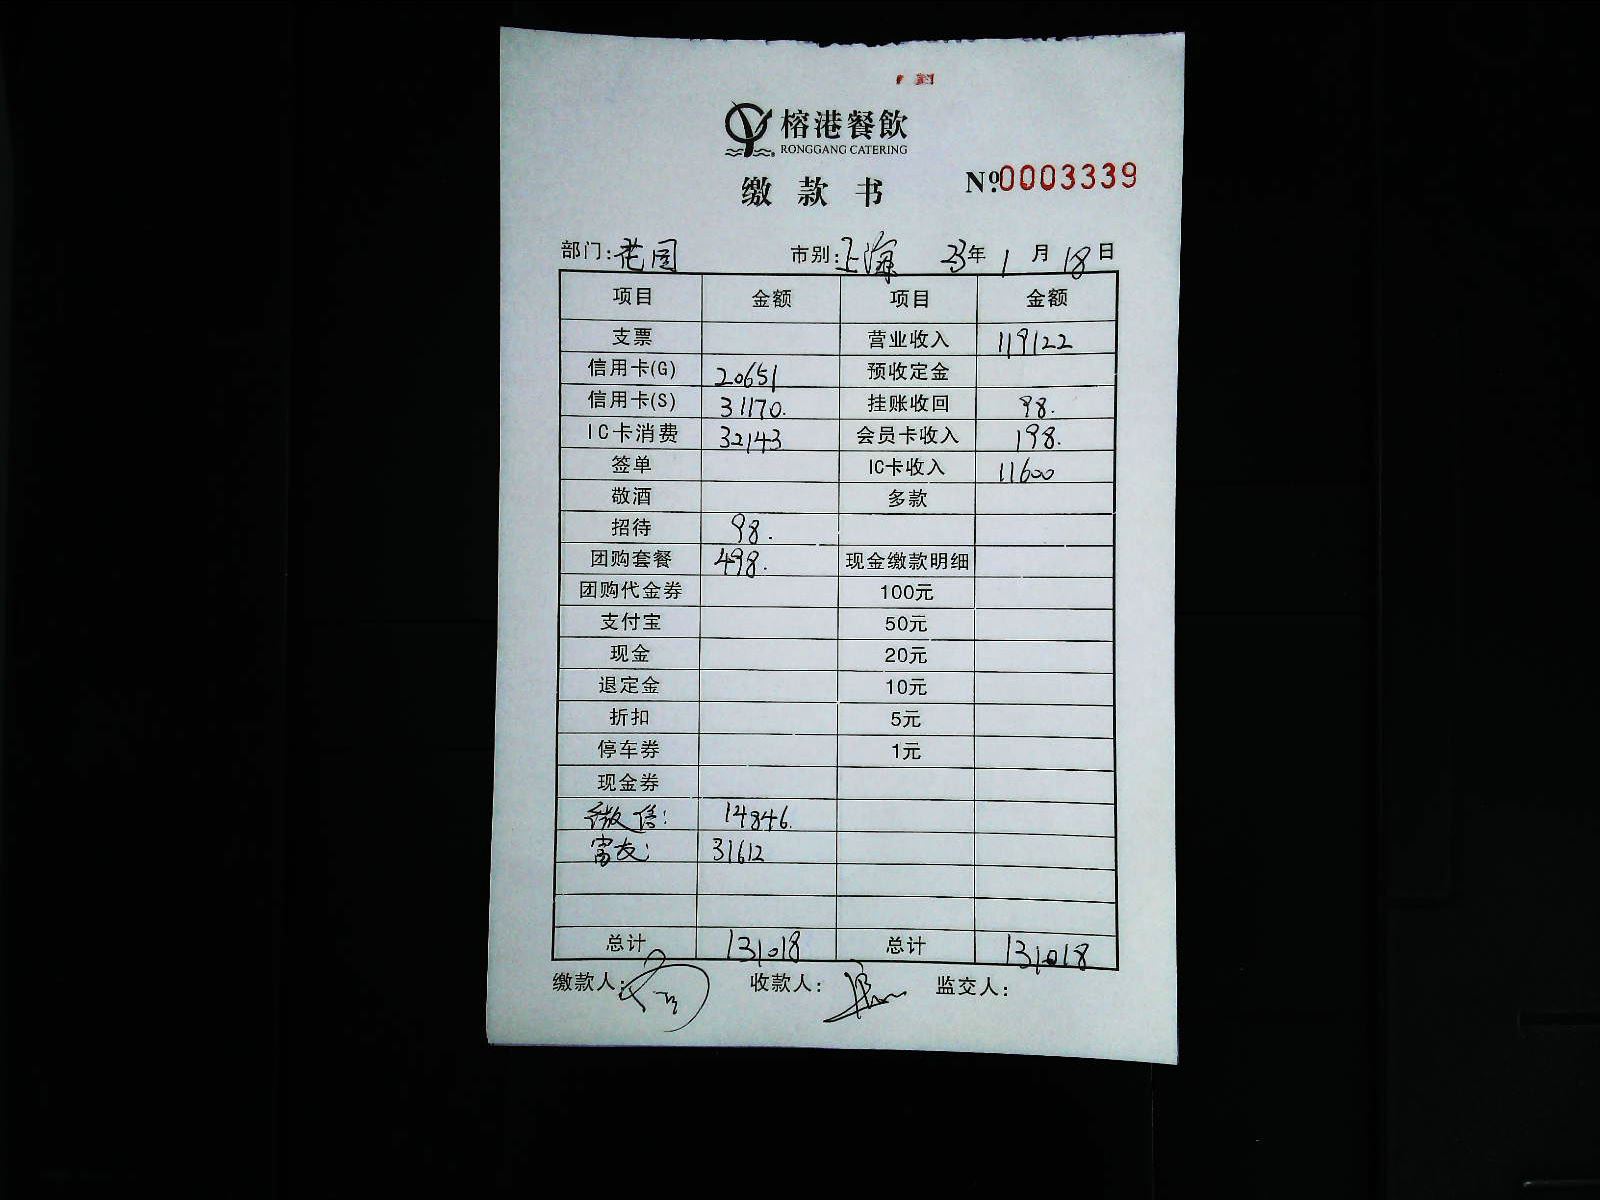 榕港餐飲
RONGGANG CATERING
缴款书 Nº:0003339
部门:花园 市别:上海 23年1月18日
项目 金额 项目 金额
支票 营业收入 119122
信用卡(G) 20651 预收定金
信用卡(S) 31170. 挂账收回 98.
IC卡消费 32143 会员卡收入 198.
签单 IC卡收入 11600
敬酒 多款
招待 98.
团购套餐 498. 现金缴款明细
团购代金券 100元
支付宝 50元
现金 20元
退定金 10元
折扣 5元
停车券 1元
现金券
微信: 14846.
富友: 31612
总计 131018 总计 131018
缴款人: 收款人: 监交人: